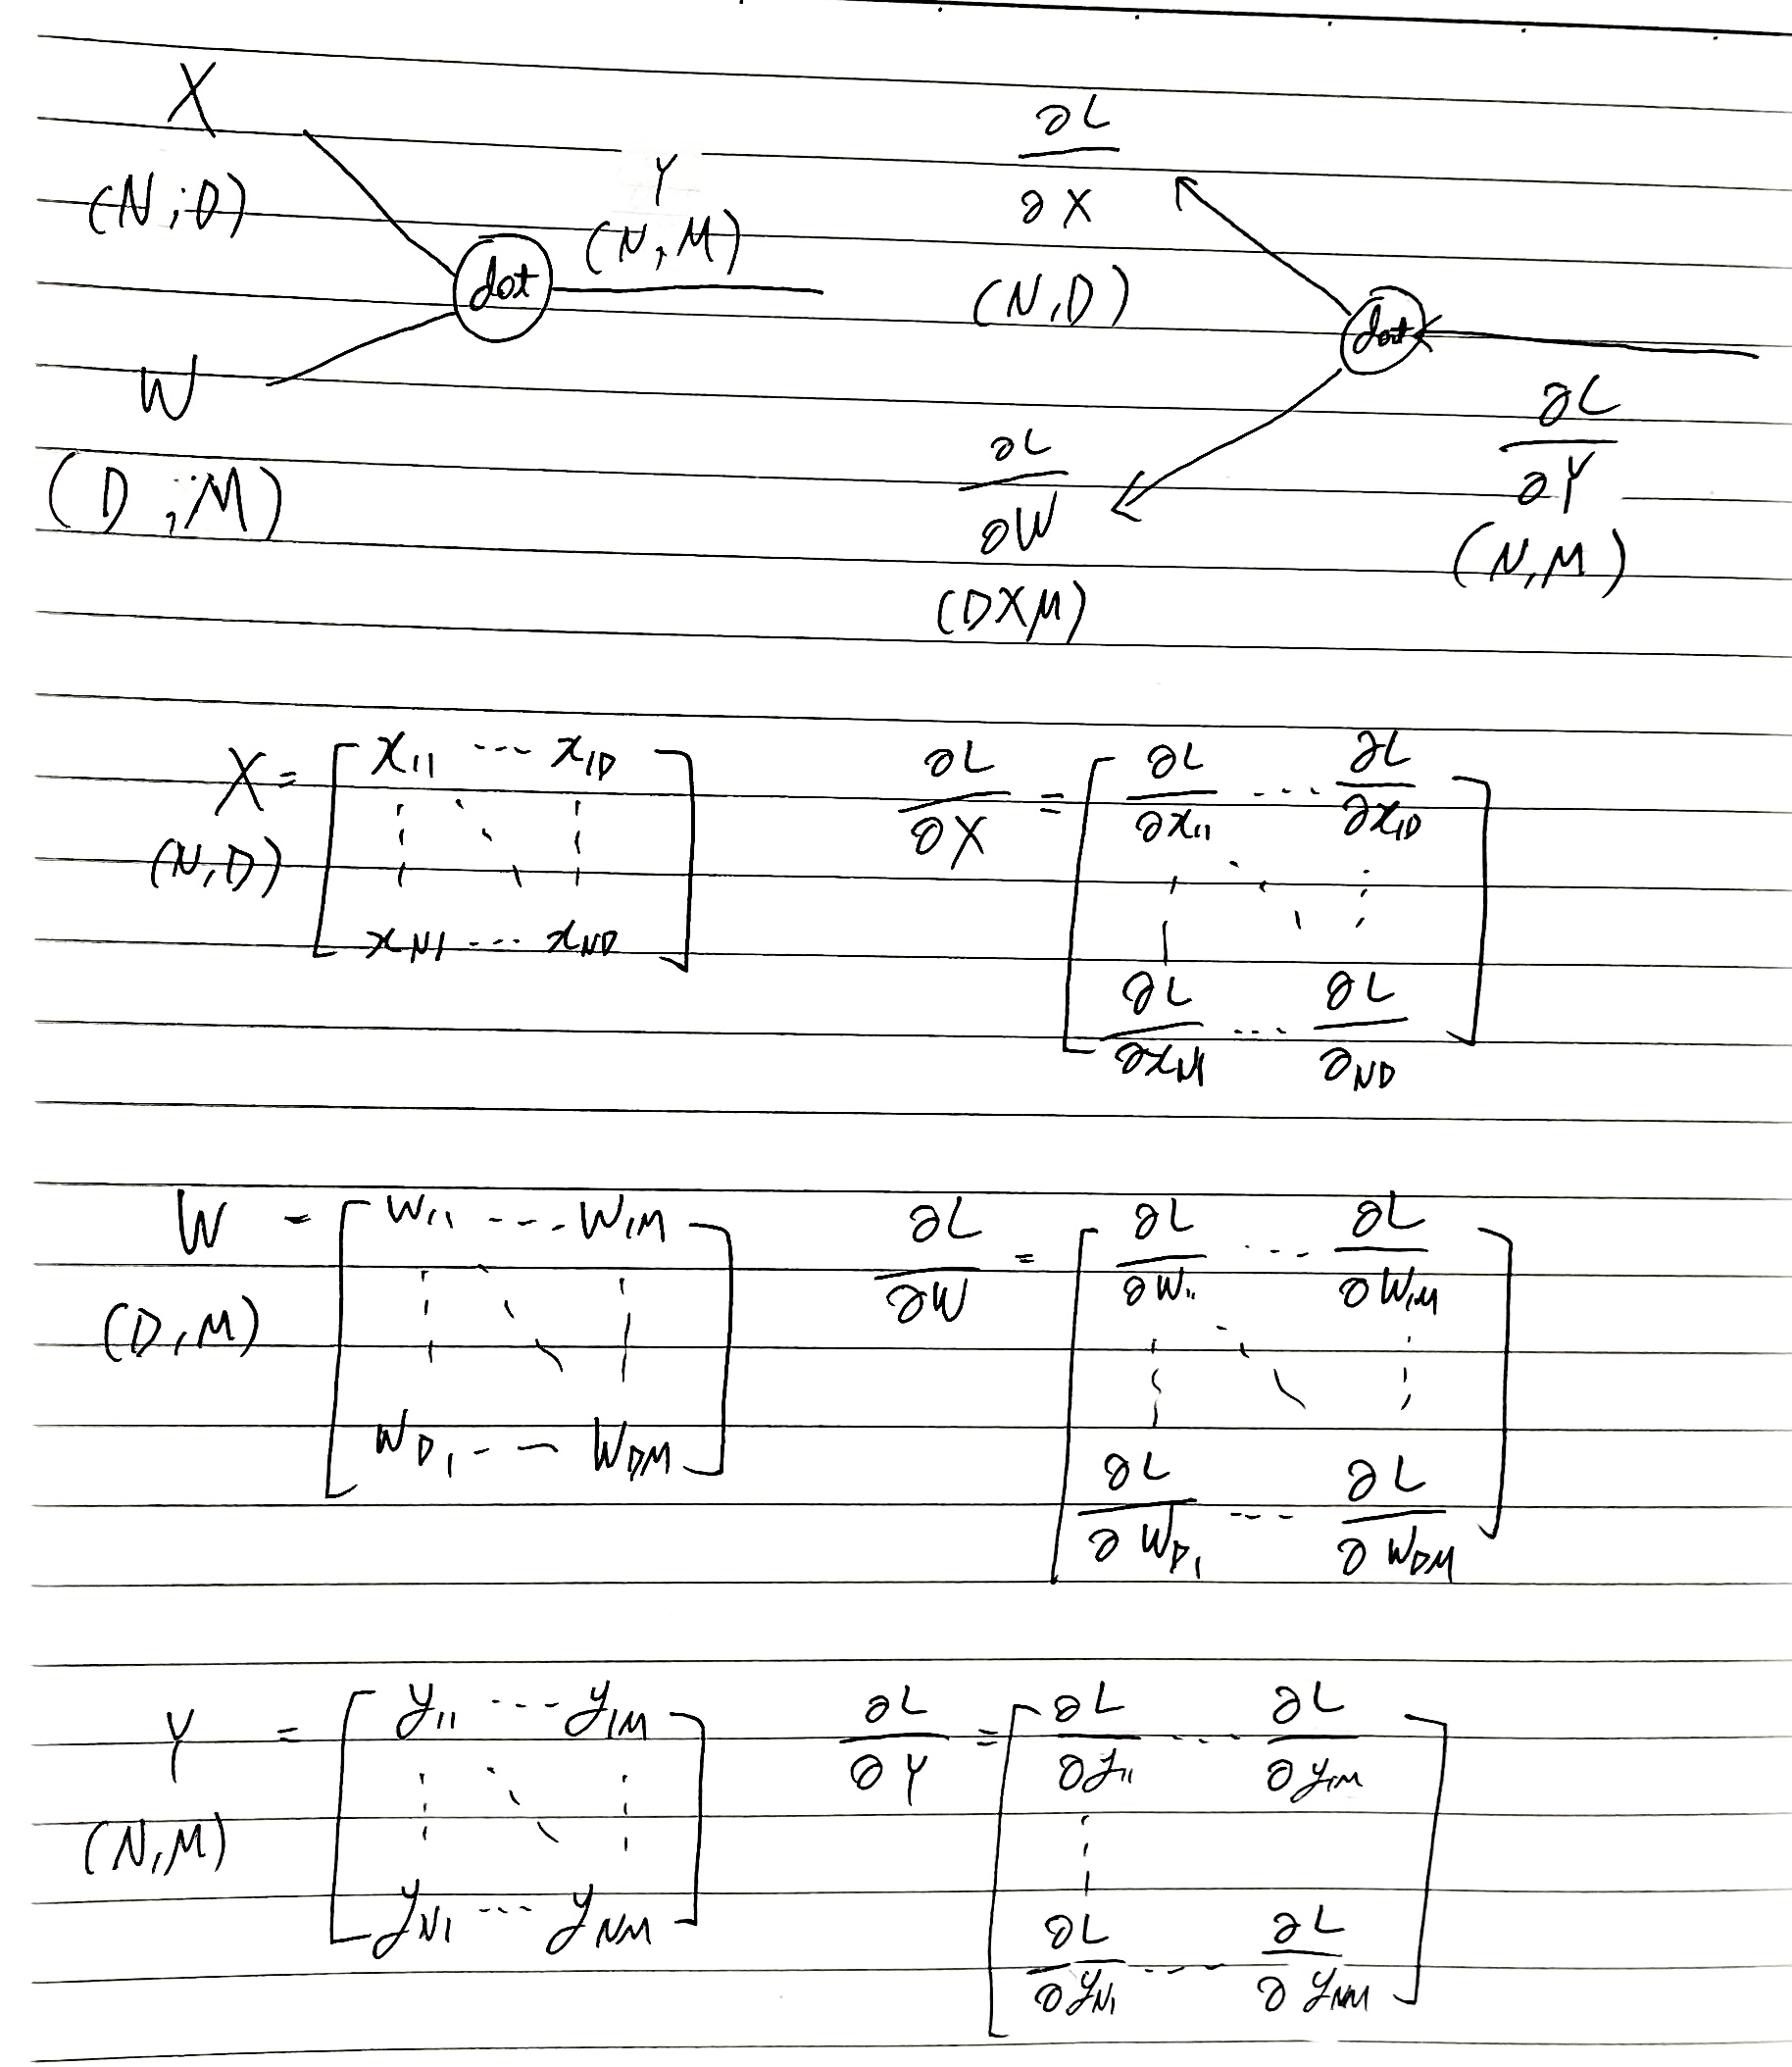 X
(N,D)
dot
Y
(N,M)
W
(D,M)
∂L
∂X
(N,D)
dot
∂L
∂Y
(N,M)
∂L
∂W
(DXM)
X = [ x11 --- x1D
(N,D)
xN1 --- xND ]
∂L/∂X = [ ∂L/∂x11 ---- ∂L/∂x1D
∂L/∂xN1 ---- ∂L/∂ND ]
W = [ W11 ---- W1M
(D,M)
WD1 --- WDM ]
∂L/∂W = [ ∂L/∂W11 ---- ∂L/∂W1M
∂L/∂WD1 ---- ∂L/∂WDM ]
Y = [ y11 ---- y1M
(N,M)
yN1 ---- yNM ]
∂L/∂Y = [ ∂L/∂y11 ---- ∂L/∂y1M
∂L/∂yN1 ---- ∂L/∂yNM ]